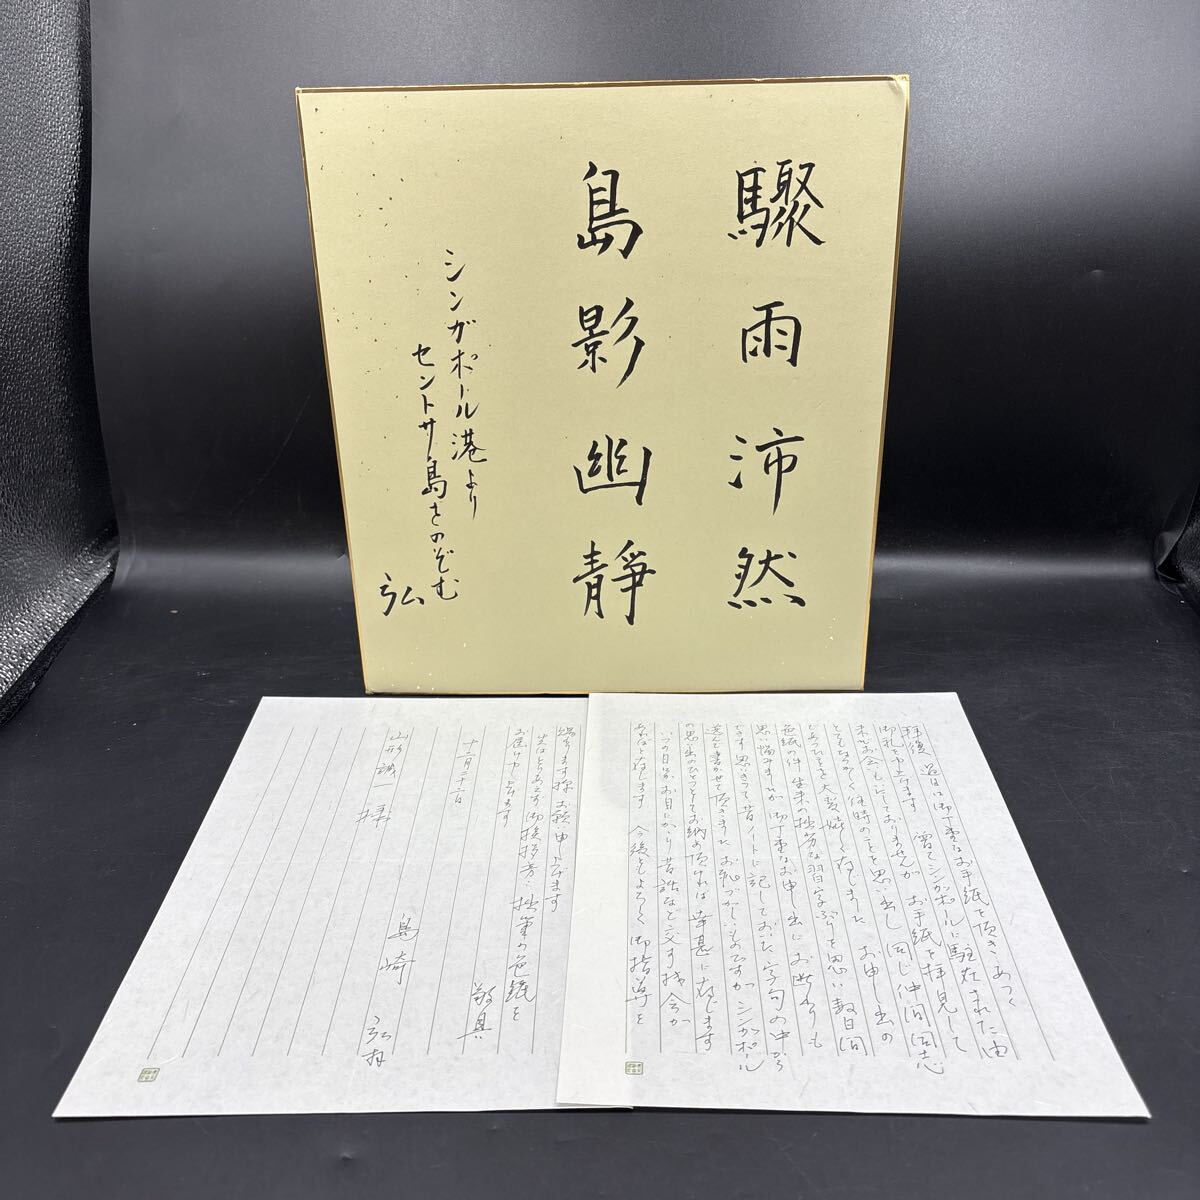 驟雨沛然
島影幽靜
シンガポール港より
セントサ島をのぞむ
弘
拝復 過日は御丁重なお手紙を頂きあつく
御礼申上げます 曽てシンガポールに駐在された由
未だお会いもしておりませんが お手紙を拝見して
とてもなつかく 何時のことを思い出し 同じ仲間 同志
と会ったようで大変嬉しく存じました お申出の
色紙の件 生来の拙劣な習字ぶりを思い 数日間
思い悩みましたが 御丁重なお申し出にお断りも
できず思いきって 昔ノートに記しておいた字句の中から
選んで書かせて頂きました お恥づかしいものですが シンガポール
の思出のひとつとしてお納め頂ければ 幸甚に存じます
いつの日かお目にかかり 昔話など交す機会が
あればと存じます 今後ともよろしく御指導を
賜ります様 お願い申し上げます
先はとりあえず御挨拶旁々 拙筆の色紙を
お届け申し上げます
敬具
十二月二十二日
島崎
山形誠一 様